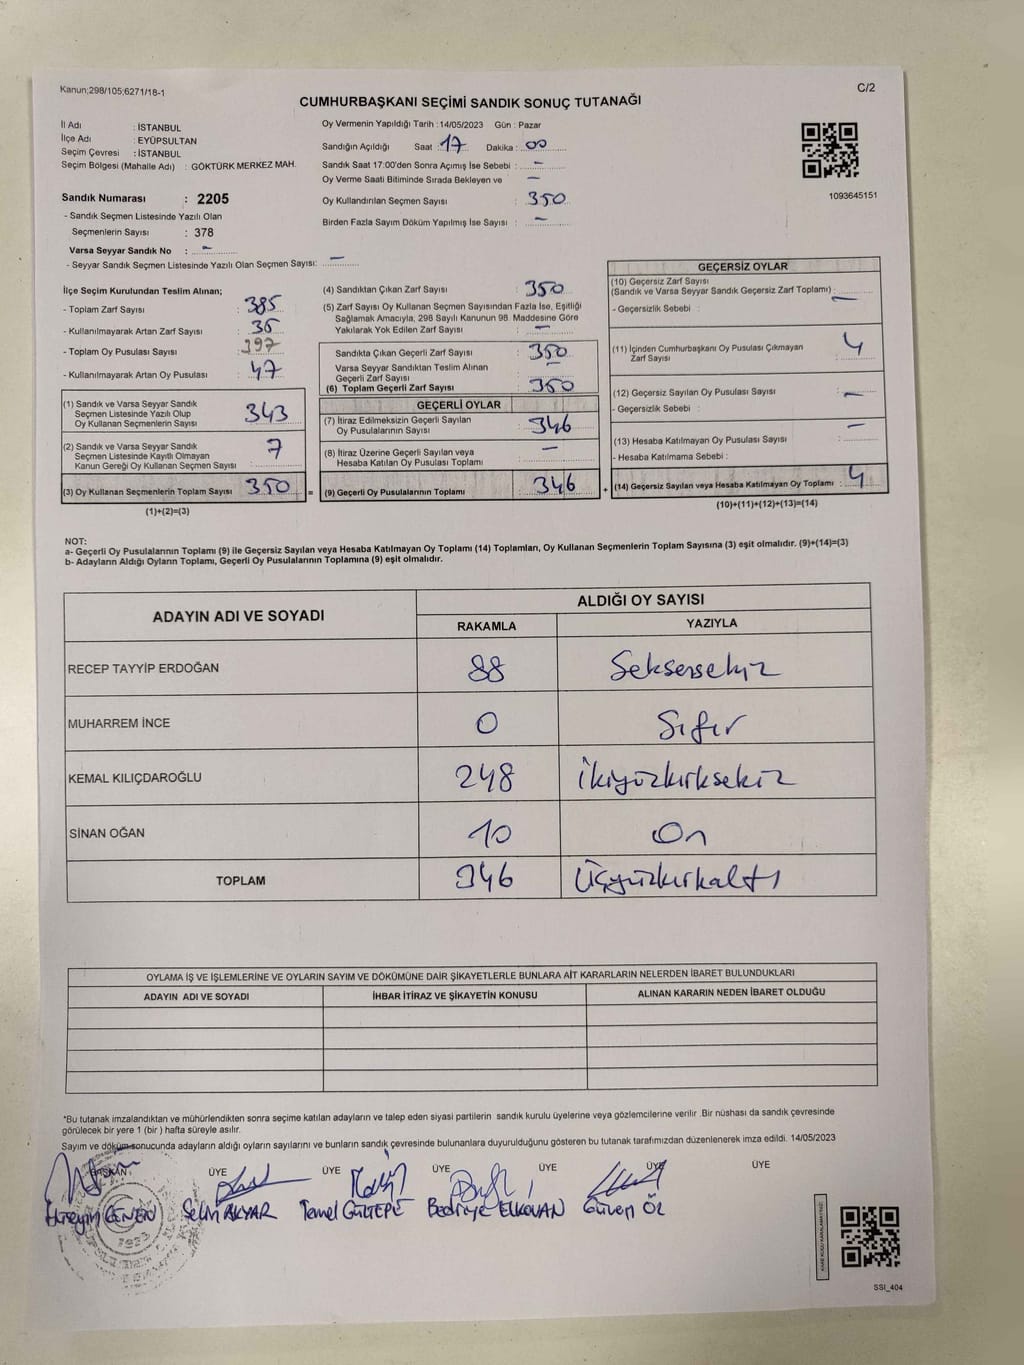 Kanun;298/105;6271/18-1
C/2
CUMHURBAŞKANI SEÇİMİ SANDIK SONUÇ TUTANAĞI
İl Adı : İSTANBUL
İlçe Adı : EYÜPSULTAN
Seçim Çevresi : İSTANBUL
Seçim Bölgesi (Mahalle Adı) : GÖKTÜRK MERKEZ MAH.
Sandık Numarası : 2205
- Sandık Seçmen Listesinde Yazılı Olan
Seçmenlerin Sayısı : 378
Varsa Seyyar Sandık No : -
- Seyyar Sandık Seçmen Listesinde Yazılı Olan Seçmen Sayısı: -
Oy Vermenin Yapıldığı Tarih : 14/05/2023 Gün : Pazar
Sandığın Açıldığı Saat : 17 Dakika : 00
Sandık Saat 17:00'den Sonra Açımış İse Sebebi : -
Oy Verme Saati Bitiminde Sırada Bekleyen ve -
Oy Kullandırılan Seçmen Sayısı : 350
Birden Fazla Sayım Döküm Yapılmış İse Sayısı : -
1093645151
İlçe Seçim Kurulundan Teslim Alınan;
- Toplam Zarf Sayısı : 385
- Kullanılmayarak Artan Zarf Sayısı : 35
- Toplam Oy Pusulası Sayısı : 397
- Kullanılmayarak Artan Oy Pusulası : 47
(1) Sandık ve Varsa Seyyar Sandık
Seçmen Listesinde Yazılı Olup
Oy Kullanan Seçmenlerin Sayısı : 343
(2) Sandık ve Varsa Seyyar Sandık
Seçmen Listesinde Kayıtlı Olmayan
Kanun Gereği Oy Kullanan Seçmen Sayısı : 7
(3) Oy Kullanan Seçmenlerin Toplam Sayısı : 350
(1)+(2)=(3)
=
(4) Sandıktan Çıkan Zarf Sayısı : 350
(5) Zarf Sayısı Oy Kullanan Seçmen Sayısından Fazla İse, Eşitliği
Sağlamak Amacıyla, 298 Sayılı Kanunun 98. Maddesine Göre
Yakılarak Yok Edilen Zarf Sayısı : -
Sandıkta Çıkan Geçerli Zarf Sayısı : 350
Varsa Seyyar Sandıktan Teslim Alınan
Geçerli Zarf Sayısı : -
(6) Toplam Geçerli Zarf Sayısı : 350
GEÇERLİ OYLAR
(7) İtiraz Edilmeksizin Geçerli Sayılan
Oy Pusulalarının Sayısı : 346
(8) İtiraz Üzerine Geçerli Sayılan veya
Hesaba Katılan Oy Pusulası Toplamı : -
(9) Geçerli Oy Pusulalarının Toplamı : 346
+
GEÇERSİZ OYLAR
(10) Geçersiz Zarf Sayısı
(Sandık ve Varsa Seyyar Sandık Geçersiz Zarf Toplamı) : -
- Geçersizlik Sebebi :
(11) İçinden Cumhurbaşkanı Oy Pusulası Çıkmayan
Zarf Sayısı : 4
(12) Geçersiz Sayılan Oy Pusulası Sayısı : -
- Geçersizlik Sebebi :
(13) Hesaba Katılmayan Oy Pusulası Sayısı : -
- Hesaba Katılmama Sebebi :
(14) Geçersiz Sayılan veya Hesaba Katılmayan Oy Toplamı : 4
(10)+(11)+(12)+(13)=(14)
NOT:
a- Geçerli Oy Pusulalarının Toplamı (9) ile Geçersiz Sayılan veya Hesaba Katılmayan Oy Toplamı (14) Toplamları, Oy Kullanan Seçmenlerin Toplam Sayısına (3) eşit olmalıdır. (9)+(14)=(3)
b- Adayların Aldığı Oyların Toplamı, Geçerli Oy Pusulalarının Toplamına (9) eşit olmalıdır.
ADAYIN ADI VE SOYADI
ALDIĞI OY SAYISI
RAKAMLA YAZIYLA
RECEP TAYYİP ERDOĞAN 88 Seksensekiz
MUHARREM İNCE 0 Sıfır
KEMAL KILIÇDAROĞLU 248 ikiyüzkırksekiz
SİNAN OĞAN 10 On
TOPLAM 346 Üçyüzkırkaltı
OYLAMA İŞ VE İŞLEMLERİNE VE OYLARIN SAYIM VE DÖKÜMÜNE DAİR ŞİKAYETLERLE BUNLARA AİT KARARLARIN NELERDEN İBARET BULUNDUKLARI
ADAYIN ADI VE SOYADI İHBAR İTİRAZ VE ŞİKAYETİN KONUSU ALINAN KARARIN NEDEN İBARET OLDUĞU
*Bu tutanak imzalandıktan ve mühürlendikten sonra seçime katılan adayların ve talep eden siyasi partilerin sandık kurulu üyelerine veya gözlemcilerine verilir .Bir nüshası da sandık çevresinde
görülecek bir yere 1 (bir ) hafta süreyle asılır.
Sayım ve döküm sonucunda adayların aldığı oyların sayılarını ve bunların sandık çevresinde bulunanlara duyurulduğunu gösteren bu tutanak tarafımızdan düzenlenerek imza edildi. 14/05/2023
BAŞKAN ÜYE ÜYE ÜYE ÜYE ÜYE ÜYE
Hüseyin Selin AKYAR Temel GÜLTEPE Bedriye ELKOVAN Güven ÖZ
1923
SSI_404